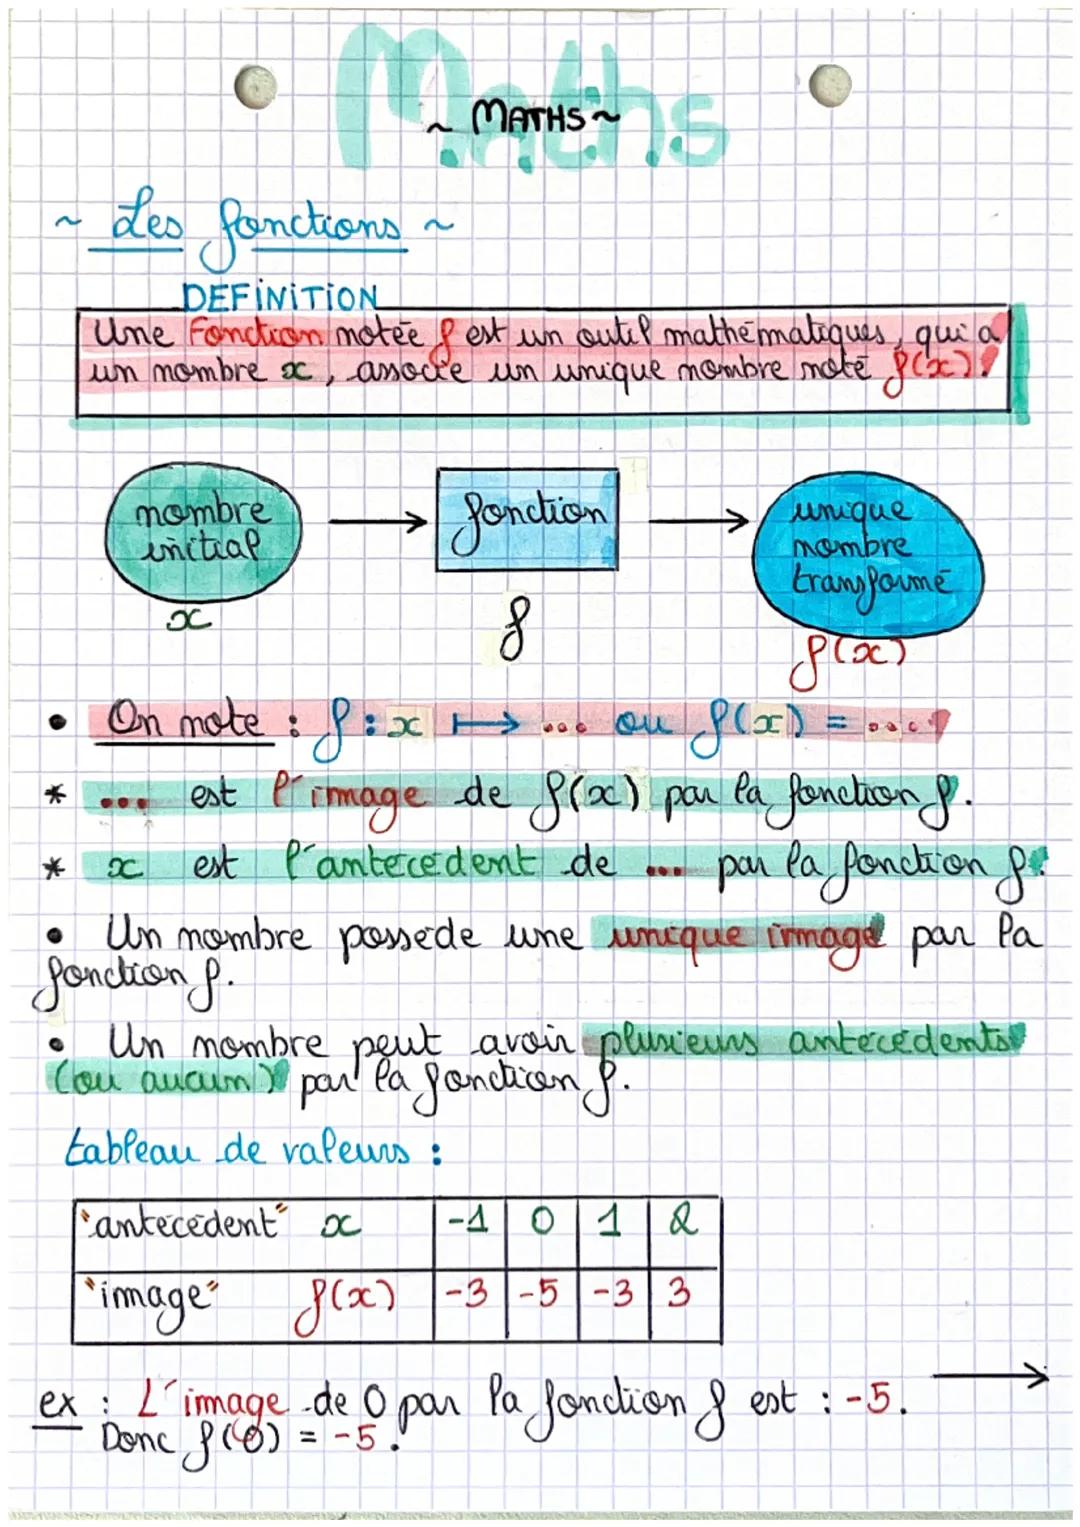 Maths
~ MATHS ~
~ Les fonctions ~
DEFINITION
Une Fonction notée f est un outil mathématiques, qui a
un nombre x, associe un unique nombre noté f(x).
nombre initial → fonction → unique nombre transformé
x f f(x)
• On note : f : x ⟼ ... ou f(x) = ....
* ... est l'image de f(x) par la fonction f.
* x est l'antécédent de ... par la fonction f.
• Un nombre possede une unique image par la
fonction f.
• Un nombre peut avoir plusieurs antécédents
(ou aucun) par la fonction f.
tableau de valeurs :
"antécédent" x -1 0 1 2
"image" f(x) -3 -5 -3 3
ex : L'image de 0 par la fonction f est : -5.
Donc f(0) = -5.